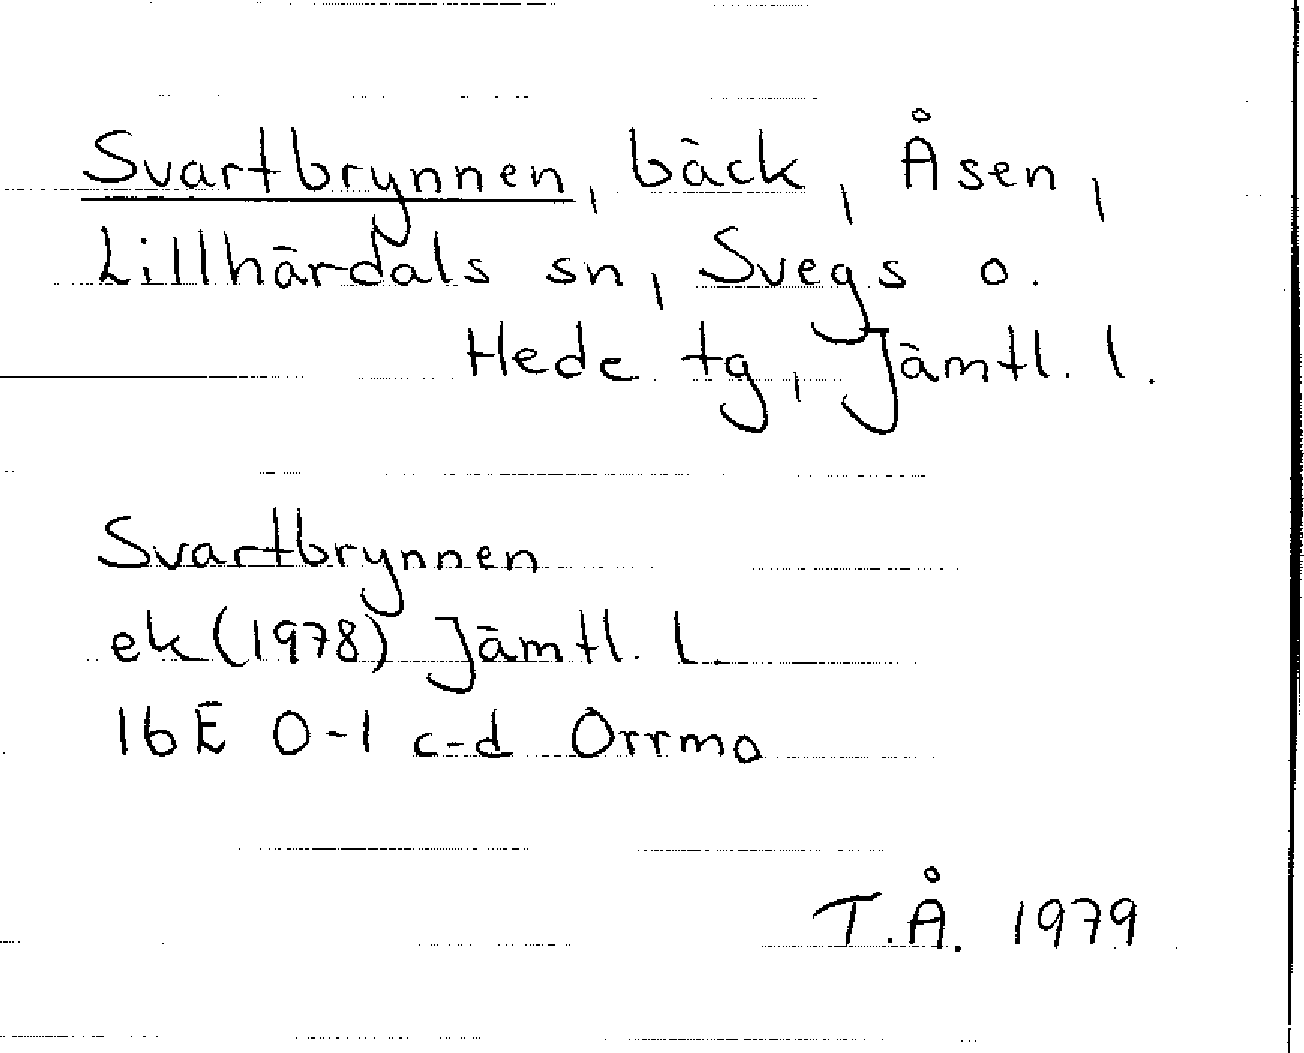 Svartbrynnen, bäck, Åsen,
Lillhärdals sn, Svegs o.
Hede tg, Jämtl. l.
Svartbrynnen
ek (1978) Jämtl. l.
16E 0-1 c-d Orrmo
T.Å. 1979